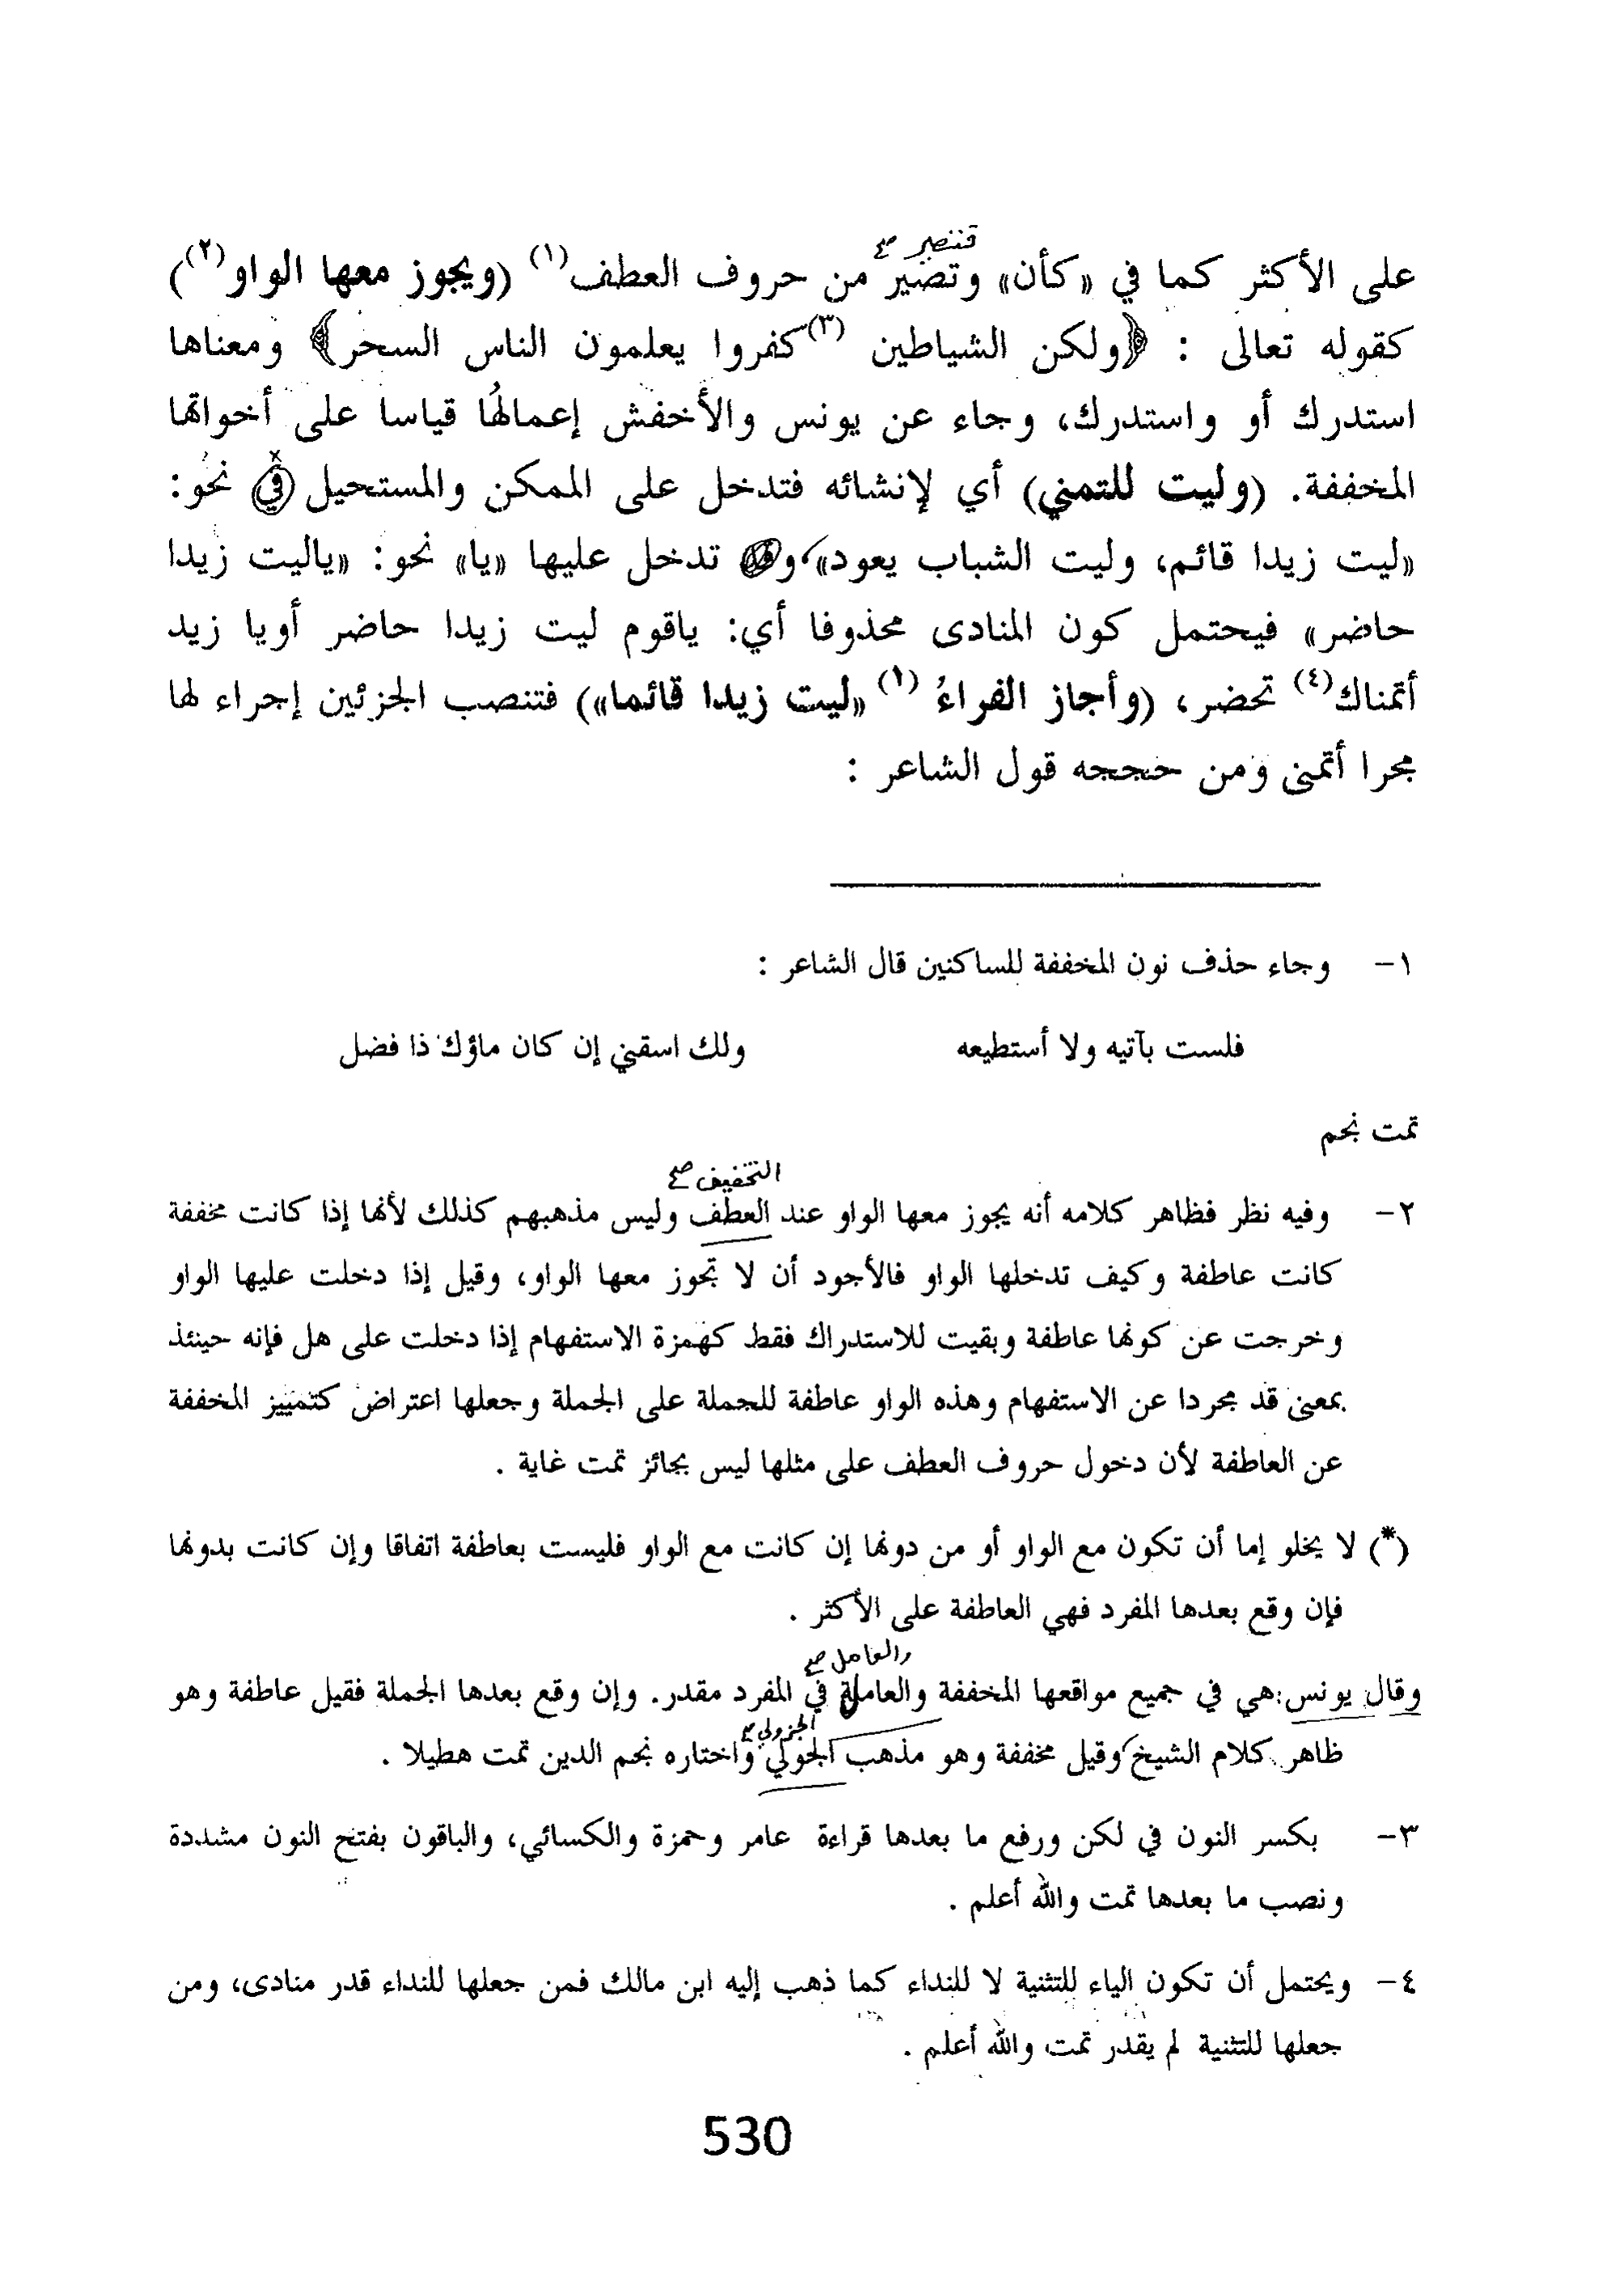 فتنصير صح
على الأكثر كما في «كأن» وتصير من حروف العطف(١) (ويجوز معها الواو(٢))
كقوله تعالى : ﴿ولكن الشياطين (٣)كفروا يعلمون الناس السحر﴾ ومعناها
استدرك أو واستدرك، وجاء عن يونس والأخفش إعمالهُا قياسا على أخواتها
المخففة. (وليت للتمني) أي لإنشائه فتدخل على الممكن والمستحيل (في) نحو:
«ليت زيدا قائم، وليت الشباب يعود» و تدخل عليها «يا» نحو: «ياليت زيدا
حاضر» فيحتمل كون المنادى محذوفا أي: ياقوم ليت زيدا حاضر أويا زيد
أتمناك(٤) تحضر، (وأجاز الفراءُ (١) «ليت زيدا قائما») فتنصب الجزئين إجراء لها
مجرا أتمنى ومن حججه قول الشاعر :
١- وجاء حذف نون المخففة للساكنين قال الشاعر :
فلست بآتيه ولا أستطيعه ولك اسقني إن كان ماؤك ذا فضل
تمت نجم
التخفيف صح
٢- وفيه نظر فظاهر كلامه أنه يجوز معها الواو عند العطف وليس مذهبهم كذلك لأنها إذا كانت مخففة
كانت عاطفة وكيف تدخلها الواو فالأجود أن لا تجوز معها الواو، وقيل إذا دخلت عليها الواو
وخرجت عن كونها عاطفة وبقيت للاستدراك فقط كهمزة الاستفهام إذا دخلت على هل فإنه حينئذ
بمعنى قد مجردا عن الاستفهام وهذه الواو عاطفة للجملة على الجملة وجعلها اعتراض كتمييز المخففة
عن العاطفة لأن دخول حروف العطف على مثلها ليس بجائز تمت غاية .
(*) لا يخلو إما أن تكون مع الواو أو من دونها إن كانت مع الواو فليست بعاطفة اتفاقا وإن كانت بدونها
فإن وقع بعدها المفرد فهي العاطفة على الأكثر .
والعامل صح
وقال يونس: هي في جميع مواقعها المخففة والعاملة في المفرد مقدر. وإن وقع بعدها الجملة فقيل عاطفة وهو
الجزولي صح
ظاهر كلام الشيخ وقيل مخففة وهو مذهب الجولي واختاره نجم الدين تمت هطيلا .
٣- بكسر النون في لكن ورفع ما بعدها قراءة عامر وحمزة والكسائي، والباقون بفتح النون مشددة
ونصب ما بعدها تمت والله أعلم .
٤- ويحتمل أن تكون الياء للتثنية لا للنداء كما ذهب إليه ابن مالك فمن جعلها للنداء قدر منادى، ومن
جعلها للتثنية لم يقدر تمت والله أعلم .
530